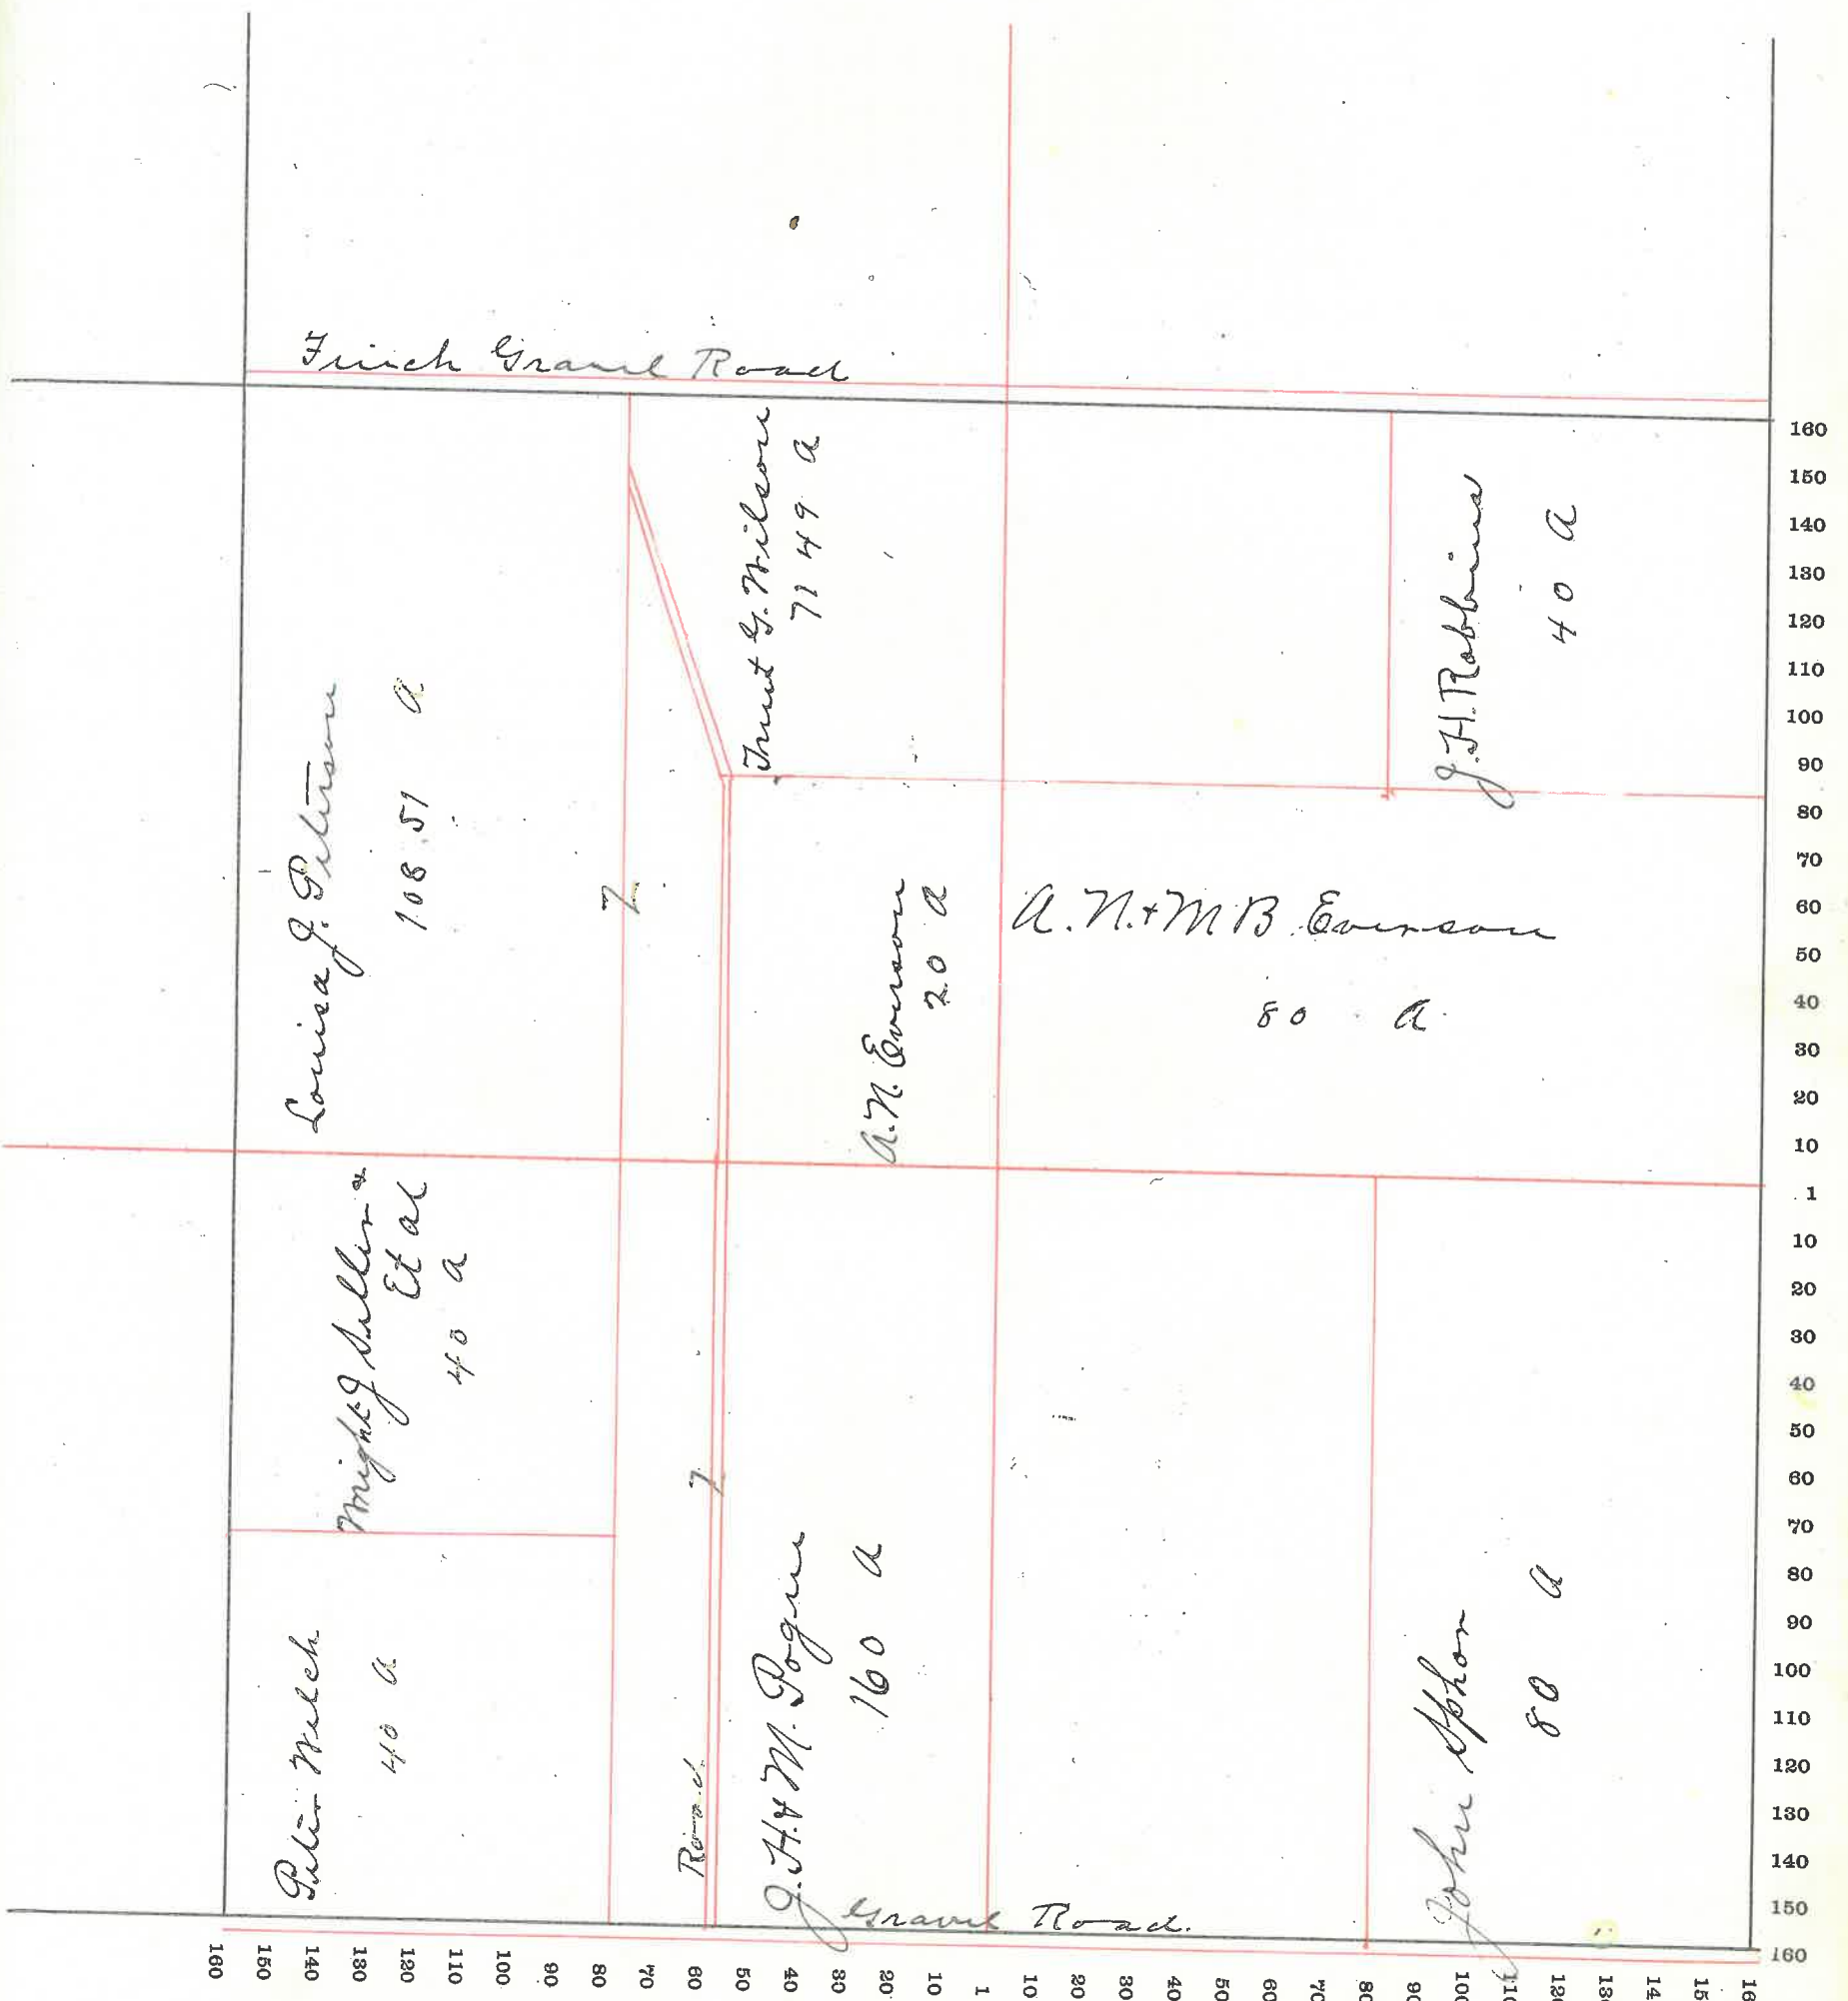 Finch Gravel Road
Louisa J. Peterson
108.51 a
Trust G. Wilson
71 49 a
J. H. Robbins
40 a
A. N. Everson
20 a
A. N. + M B Everson
80 a
7
Wright J Sellers
Et al
40 a
7
Peter Welch
40 a
Road
J. H. & M. Pogue
160 a
John Sphon
80 a
Gravel Road.
160
150
140
130
120
110
100
90
80
70
60
50
40
30
20
10
1
10
20
30
40
50
60
70
80
90
100
110
120
130
140
150
160
160 150 140 130 120 110 100 90 80 70 60 50 40 30 20 10 1 10 20 30 40 50 60 70 80 90 100 110 120